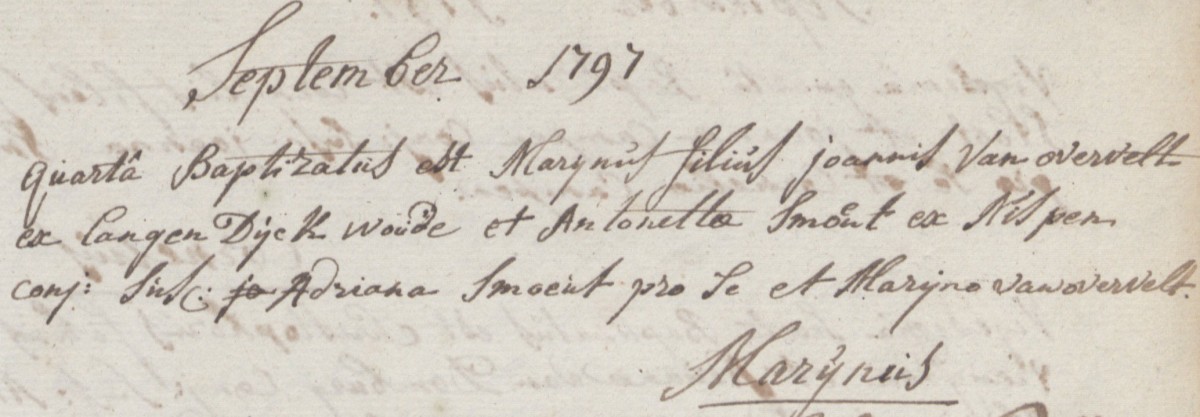 September 1797
quartâ Baptizatus est Marijnus filius joannis Van overvelt
ex Langen Dijck woude et Antonetta Smout ex Nispen
conj: Susc: Adriana Smoeut pro Se et Marijno van overvelt.
Marijnus